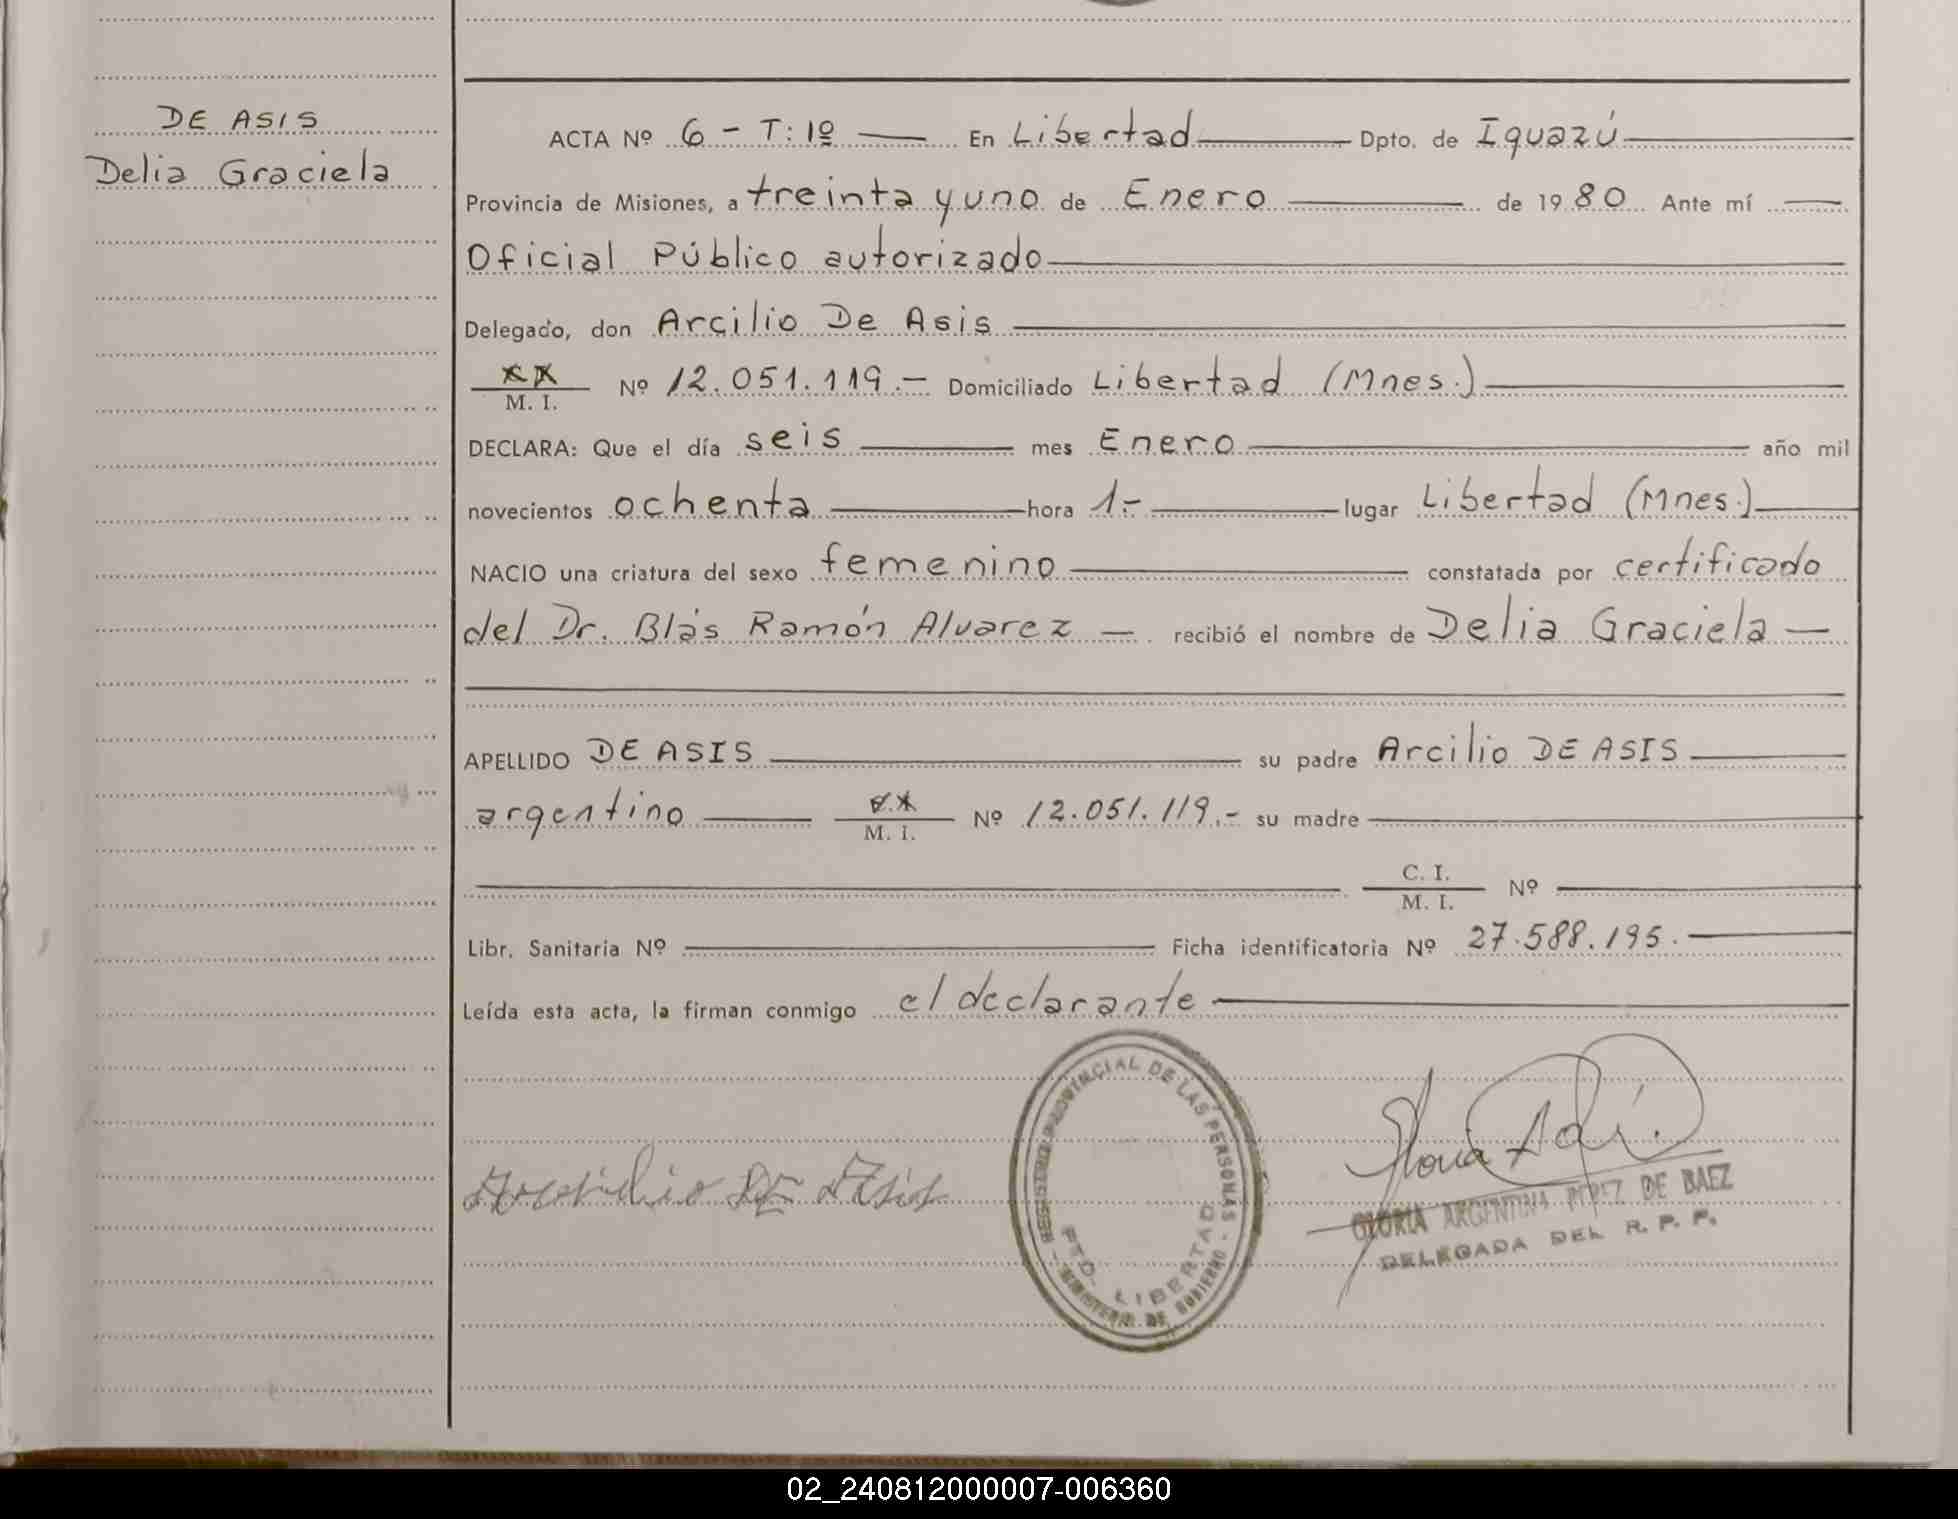 DE ASIS
Delia Graciela
ACTA Nº 6 - T: 1º En Libertad Dpto. de Iguazú
Provincia de Misiones, a treinta y uno de Enero de 1980 Ante mí
Oficial Público autorizado
Delegado, don Arcilio De Asis
M. I. Nº 12.051.119.- Domiciliado Libertad (Mnes.)
DECLARA: Que el día seis mes Enero año mil
novecientos ochenta hora 1.- lugar Libertad (Mnes.)
NACIO una criatura del sexo femenino constatada por certificado
del Dr. Blás Ramón Alvarez — recibió el nombre de Delia Graciela —
APELLIDO DE ASIS su padre Arcilio DE ASIS
argentino M. I. Nº 12.051.119.- su madre
C. I.
M. I. Nº
Libr. Sanitaria Nº Ficha identificatoria Nº 27.588.195.
Leída esta acta, la firman conmigo el declarante
REGISTRO PROVINCIAL DE LAS PERSONAS - MINISTERIO DE GOBIERNO -
PTO. LIBERTAD
De Asis
Gloria
GLORIA ARGENTINA PEREZ DE BAEZ
DELEGADA DEL R. P. P.
02_240812000007-006360